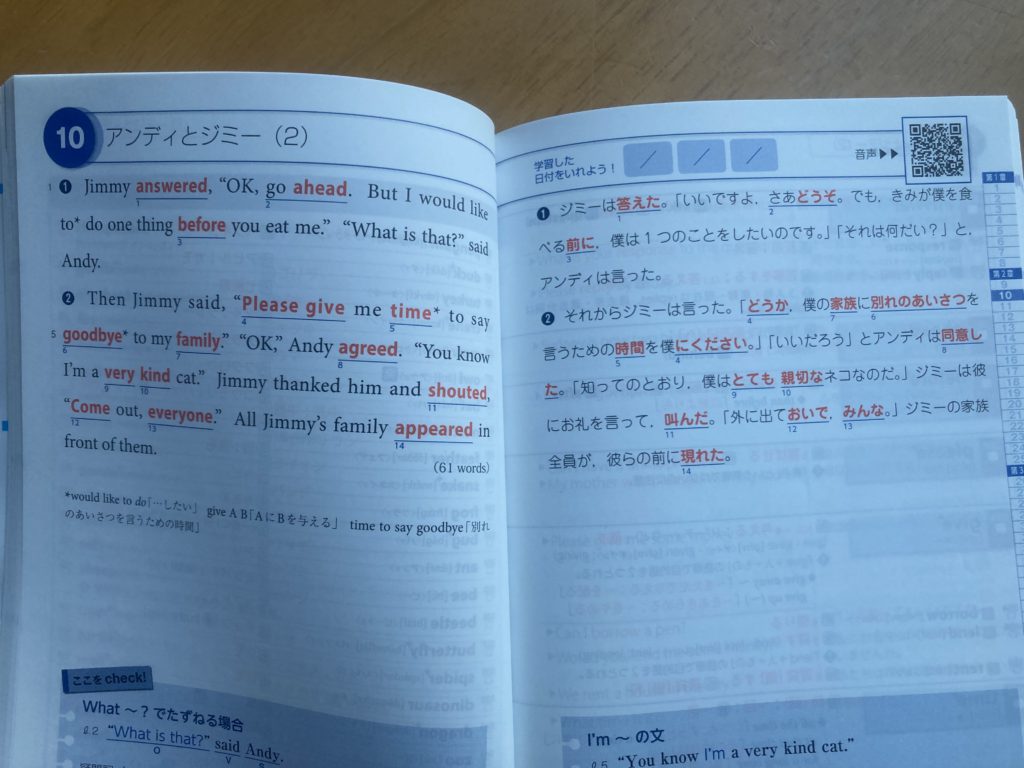 10 アンディとジミー (2)
1 ❶ Jimmy answered, “OK, go ahead. But I would like
1 2
to* do one thing before you eat me.” “What is that?” said
3
Andy.
❷ Then Jimmy said, “Please give me time* to say
4 5
5 goodbye* to my family.” “OK,” Andy agreed. “You know
6 7 8
I’m a very kind cat.” Jimmy thanked him and shouted,
9 10 11
“Come out, everyone.” All Jimmy’s family appeared in
12 13 14
front of them.
(61 words)
*would like to do「…したい」 give A B「AにBを与える」 time to say goodbye「別れ
のあいさつを言うための時間」
ここをcheck!
What ～ ? でたずねる場合
ℓ.2 “What is that?” said Andy.
O V S
学習した
日付をいれよう！
/ / /
音声▶▶
❶ ジミーは答えた。「いいですよ，さあどうぞ。でも，きみが僕を食
1 2
べる前に，僕は１つのことをしたいのです。」「それは何だい？」と，
3
アンディは言った。
❷ それからジミーは言った。「どうか，僕の家族に別れのあいさつを
4 7 6
言うための時間を僕にください。」「いいだろう」とアンディは同意し
5 4 8
た。「知ってのとおり，僕はとても 親切なネコなのだ。」ジミーは彼
9 10
にお礼を言って，叫んだ。「外に出ておいで，みんな。」ジミーの家族
11 12 13
全員が，彼らの前に現れた。
14
I’m ～ の文
ℓ.5 “You know I’m a very kind cat.”
第1章
第2章
9
10